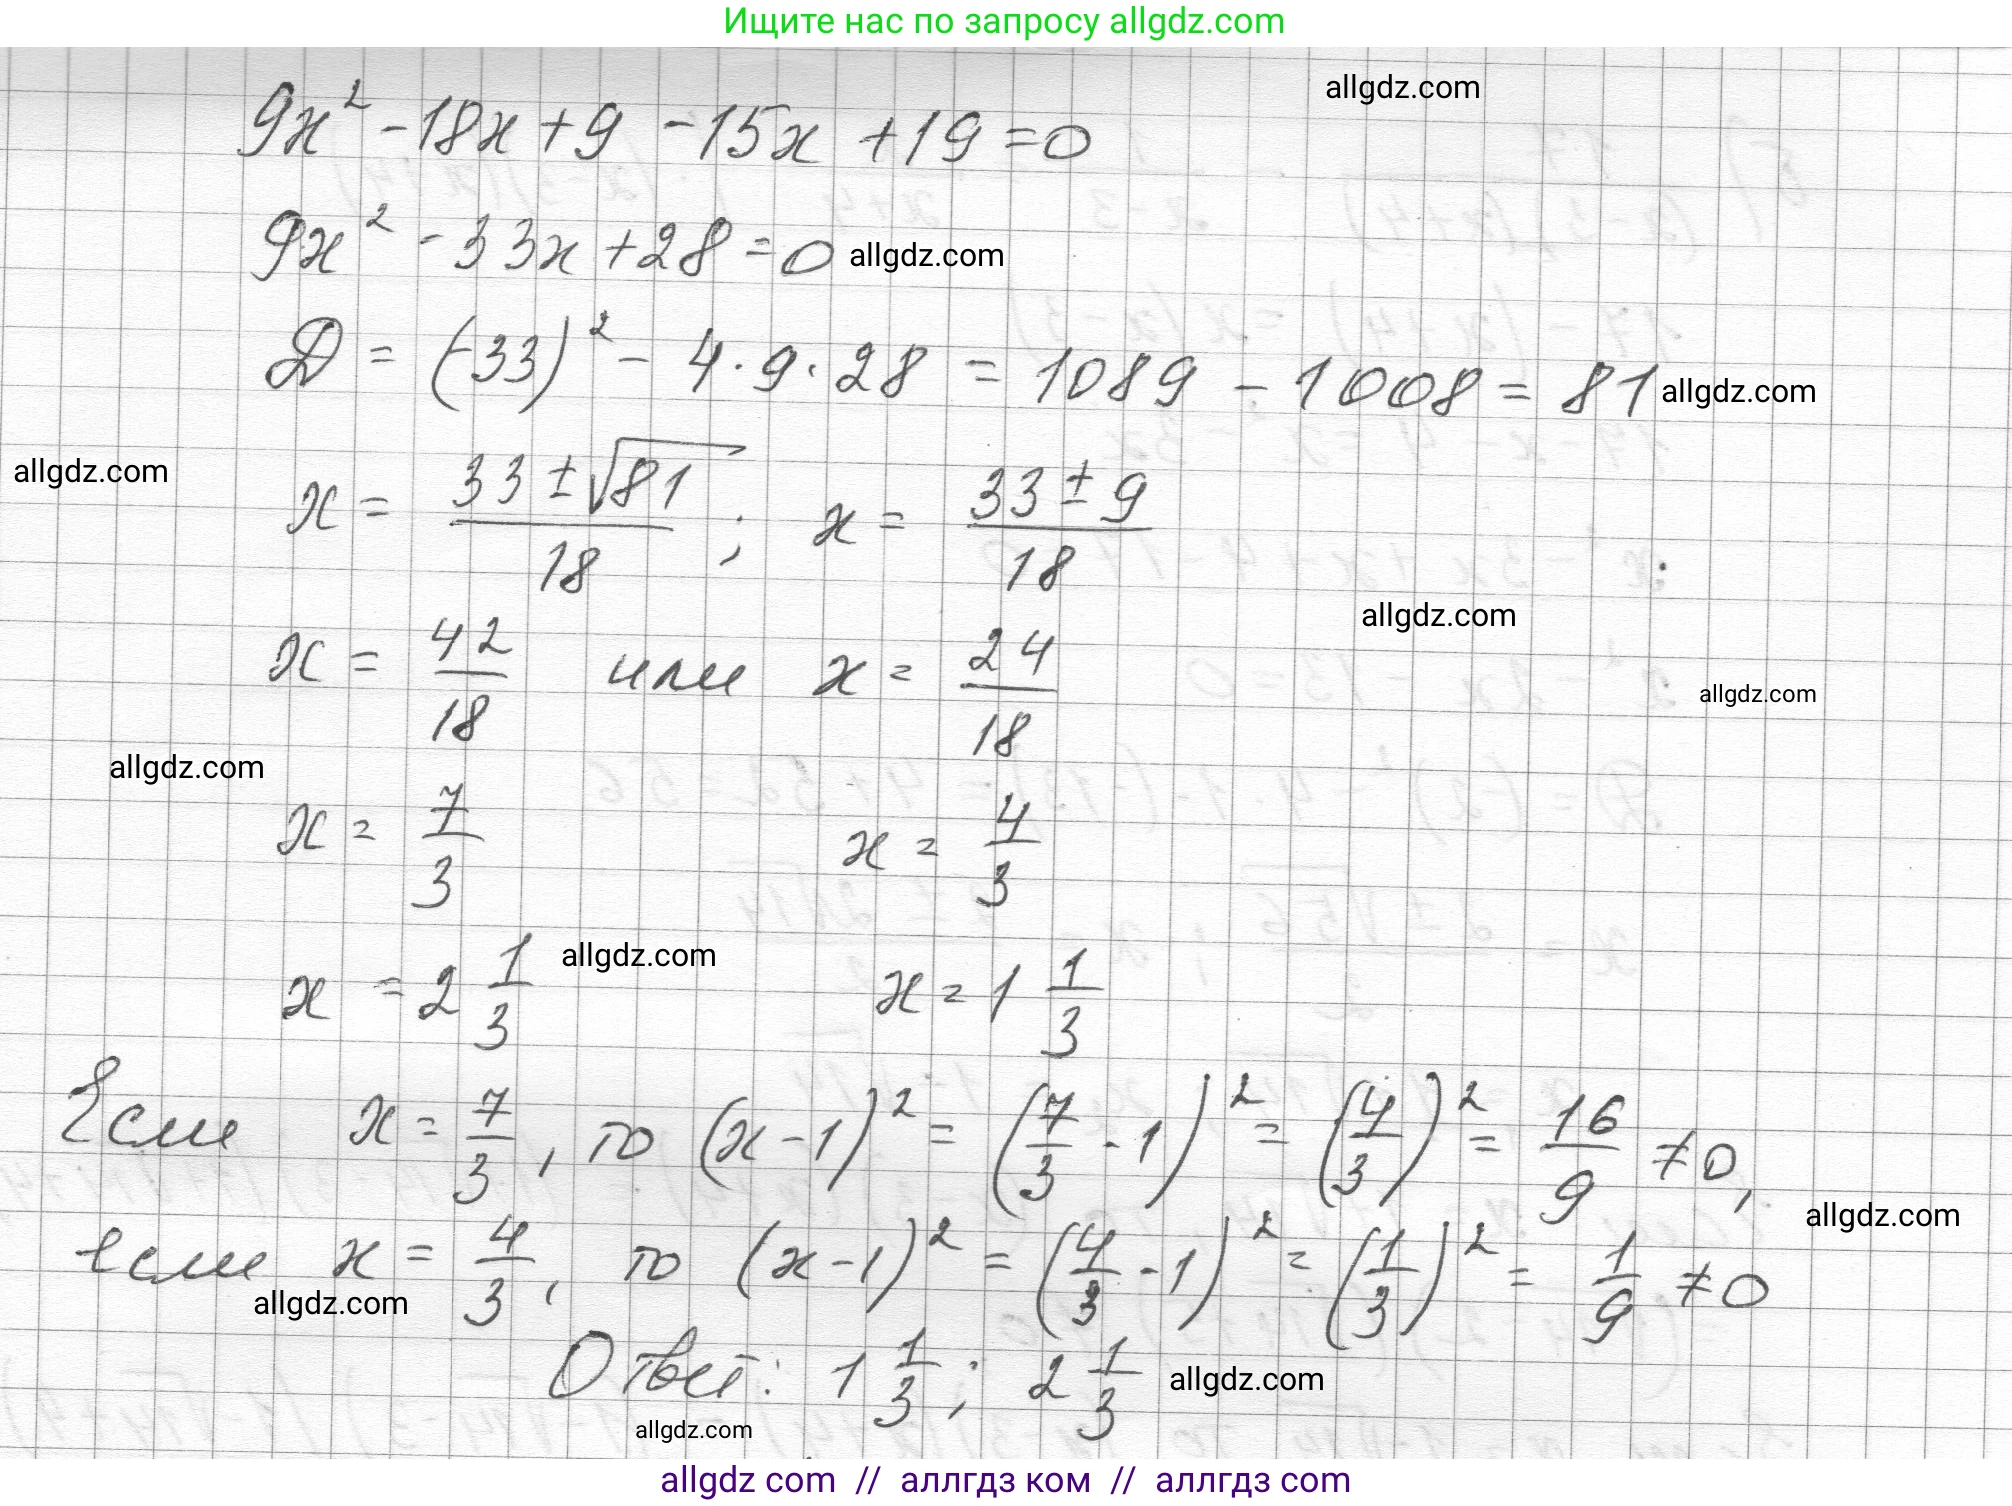 Ищите нас по запросу allgdz.com
allgdz.com
9x² - 18x + 9 - 15x + 19 = 0
9x² - 33x + 28 = 0 allgdz.com
D = (-33)² - 4·9·28 = 1089 - 1008 = 81 allgdz.com
allgdz.com
x = (33 ± √81)/18 ; x = (33 ± 9)/18
allgdz.com
x = 42/18 или x = 24/18
allgdz.com
allgdz.com
x = 7/3 x = 4/3
x = 2 1/3 allgdz.com x = 1 1/3
Если x = 7/3, то (x - 1)² = (7/3 - 1)² = (4/3)² = 16/9 ≠ 0,
allgdz.com
если x = 4/3, то (x - 1)² = (4/3 - 1)² = (1/3)² = 1/9 ≠ 0
allgdz.com
Ответ: 1 1/3 ; 2 1/3 allgdz.com
allgdz.com
allgdz com // аллгдз ком // аллгдз com